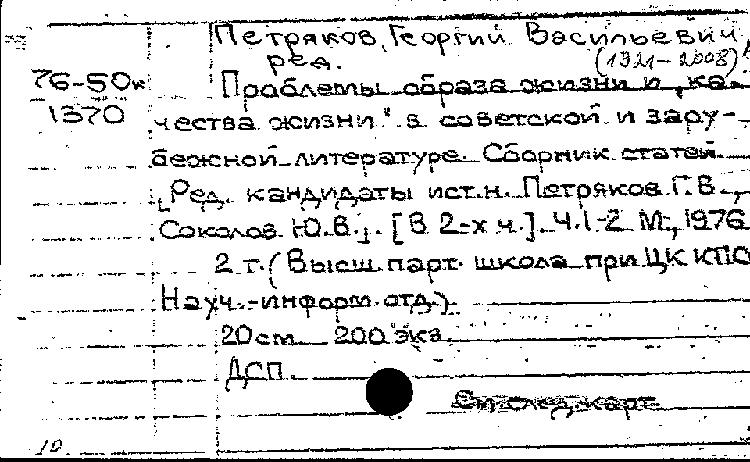 Петряков, Георгий Васильевич,
ред. (1921-2008)
76-50к Проблемы образа жизни и „ка-
1370 чества жизни" в советской и зару-
бежной литературе. Сборник статей.
[Ред. кандидаты ист.н. Петряков Г.В.,
Соколов Ю.В.]. [В 2-х ч.]. Ч.1-2 М., 1976
2 т. (Высш. парт. школа при ЦК КПС
Науч.-информ. отд.).
20 см 200 экз.
ДСП.
См. след. карт.
10